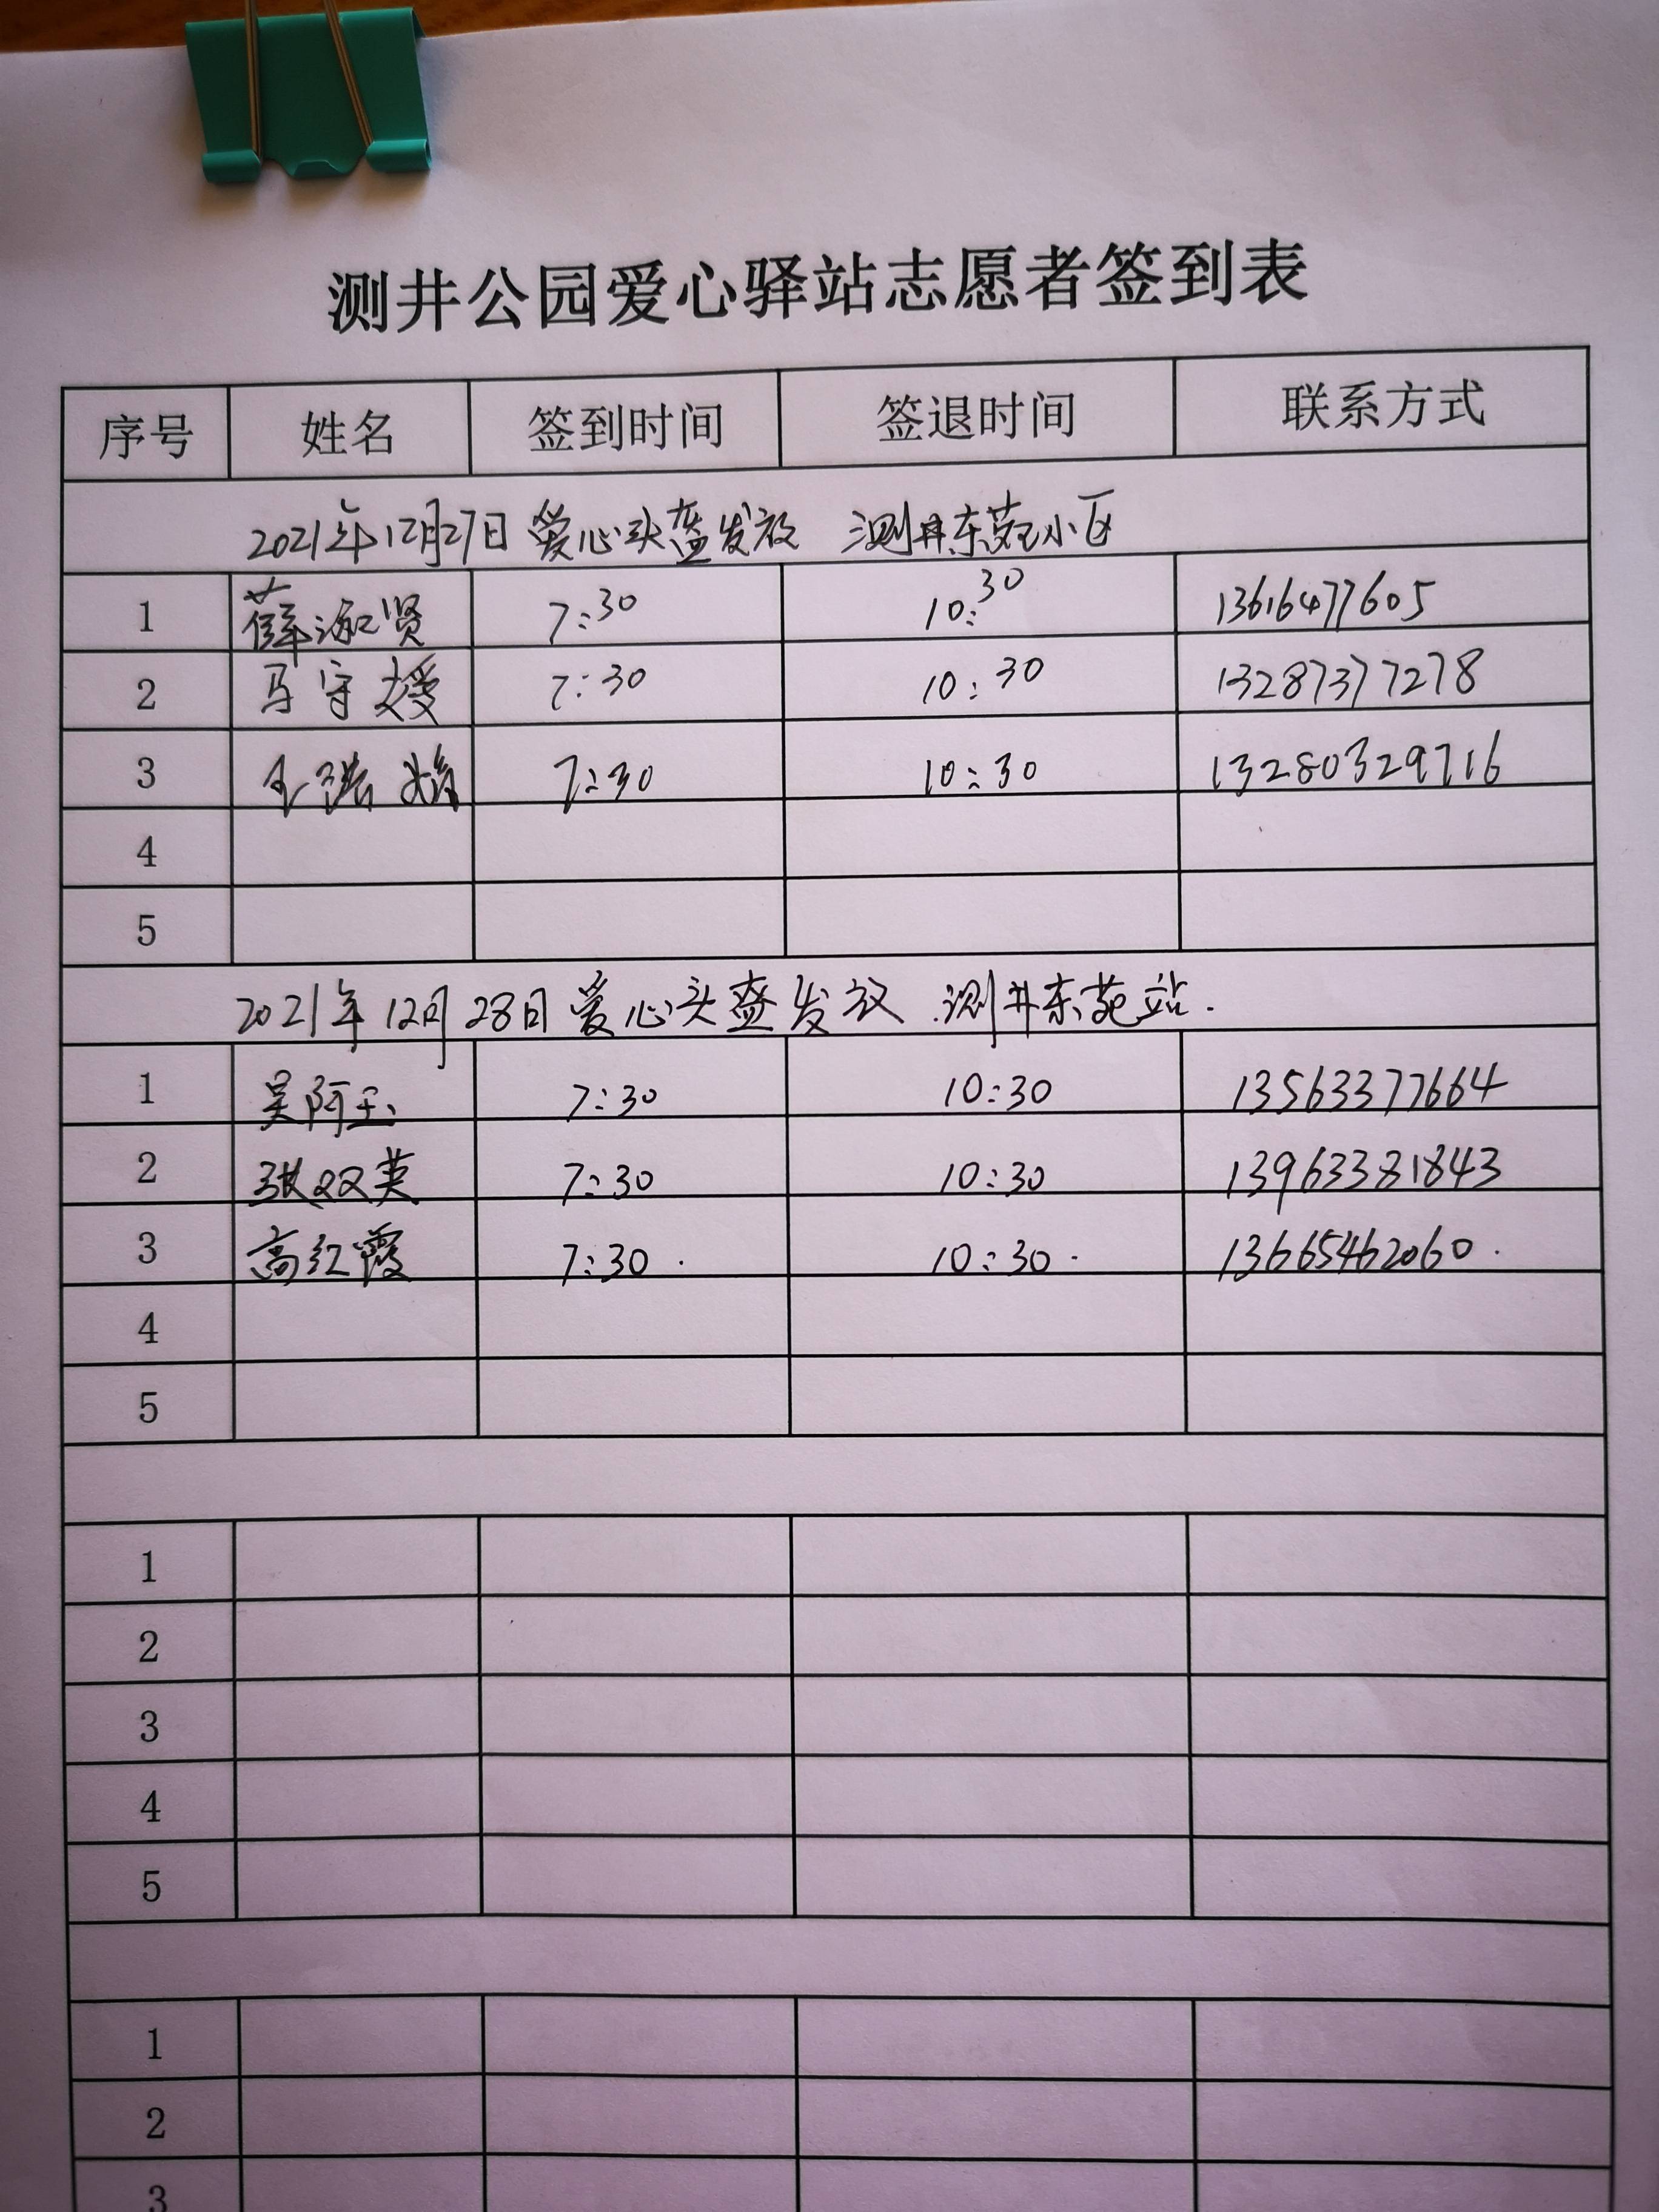 测井公园爱心驿站志愿者签到表
序号 姓名 签到时间 签退时间 联系方式
2021年12月27日 爱心头盔发放 测井东苑小区
1 薛淑贤 7:30 10:30 13616477605
2 马守媛 7:30 10:30 13287377278
3 7:30 10:30 13280329716
4
5
2021年12月28日爱心头盔发放 测井东苑站.
1 吴阿玉 7:30 10:30 13563377664
2 张双英 7:30 10:30 13963381843
3 高红霞 7:30. 10:30. 13665462060.
4
5
1
2
3
4
5
1
2
3